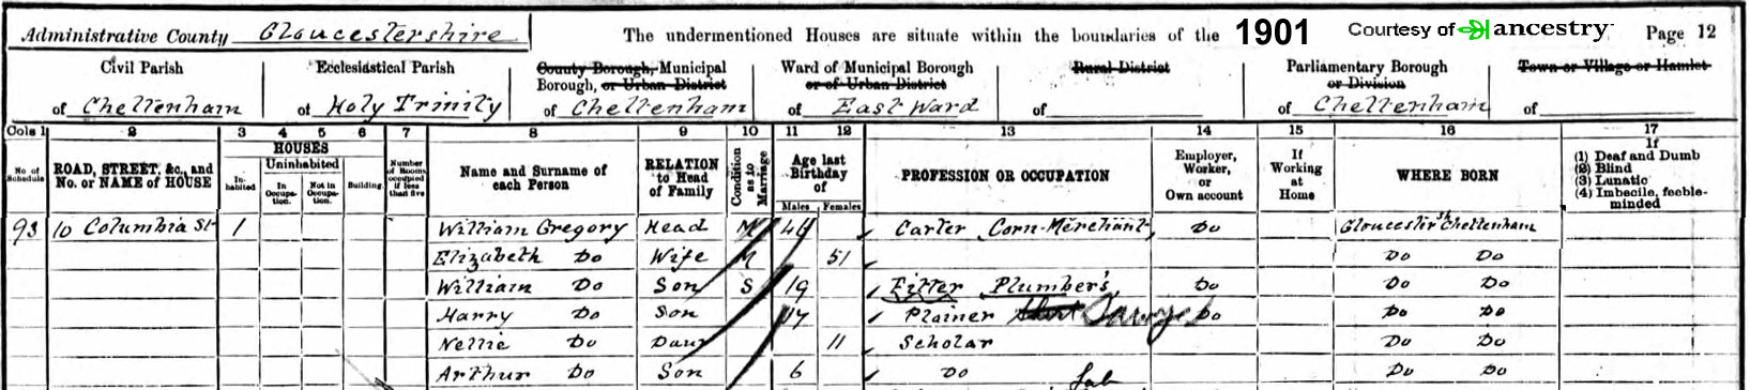 Administrative County Gloucestershire The undermentioned Houses are situate within the boundaries of the 1901 Courtesy of ancestry Page 12
Civil Parish Ecclesiastical Parish County Borough, Municipal Ward of Municipal Borough Rural District Parliamentary Borough Town or Village or Hamlet
Borough, or Urban District or of Urban District or Division
of Cheltenham of Holy Trinity of Cheltenham of East Ward of of Cheltenham of
Cols 1 2 3 4 5 6 7 8 9 10 11 12 13 14 15 16 17
No. of Schedule
ROAD, STREET, &c., and No. or NAME of HOUSE
HOUSES
Inhabited
Uninhabited
In Occupation.
Not in Occupation.
Building.
Number of Rooms occupied if less than five
Name and Surname of each Person
RELATION to Head of Family
Condition as to Marriage
Age last Birthday of
Males Females
PROFESSION OR OCCUPATION
Employer, Worker, or Own account
If Working at Home
WHERE BORN
If
(1) Deaf and Dumb
(2) Blind
(3) Lunatic
(4) Imbecile, feeble-minded
93 10 Columbia St 1 William Gregory Head M 46 Carter Corn-Merchant Do Gloucestersh Cheltenham
Elizabeth Do Wife M 51 Do Do
William Do Son S 19 Fitter Plumber's Do Do Do
Harry Do Son Plainer Do Do Do
Nellie Do Daur 11 Scholar Do Do
Arthur Do Son 6 Do Do Do